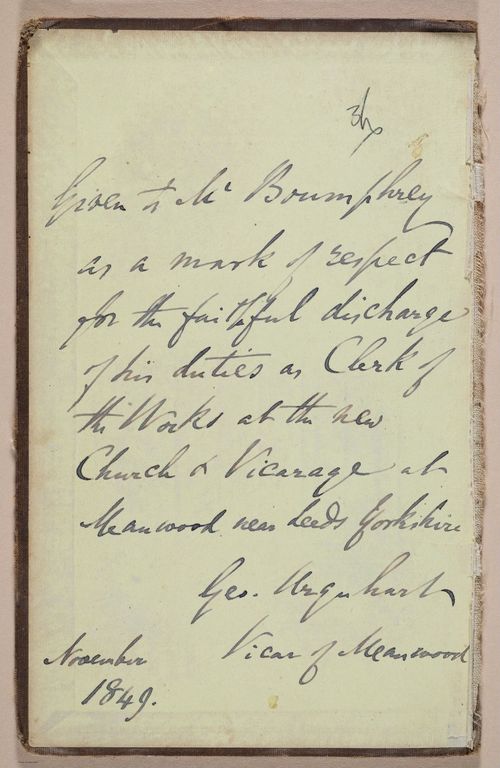 3/6
Given to Mr Boumphrey
as a mark of respect
for the faithful discharge
of his duties as Clerk of
the Works at the new
Church & Vicarage at
Meanwood near Leeds Yorkshire
Geo. Urquhart
Vicar of Meanwood
November
1849.